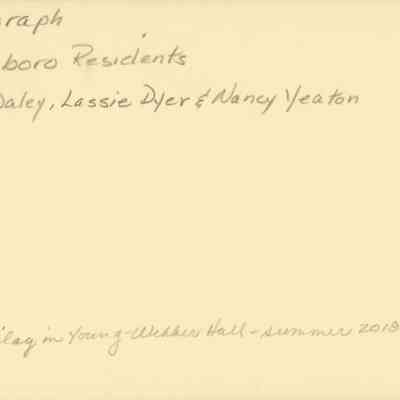 raph
boro Residents
Daley, Lassie Dyer & Nancy Yeaton
in Young-Webber Hall - summer 2018